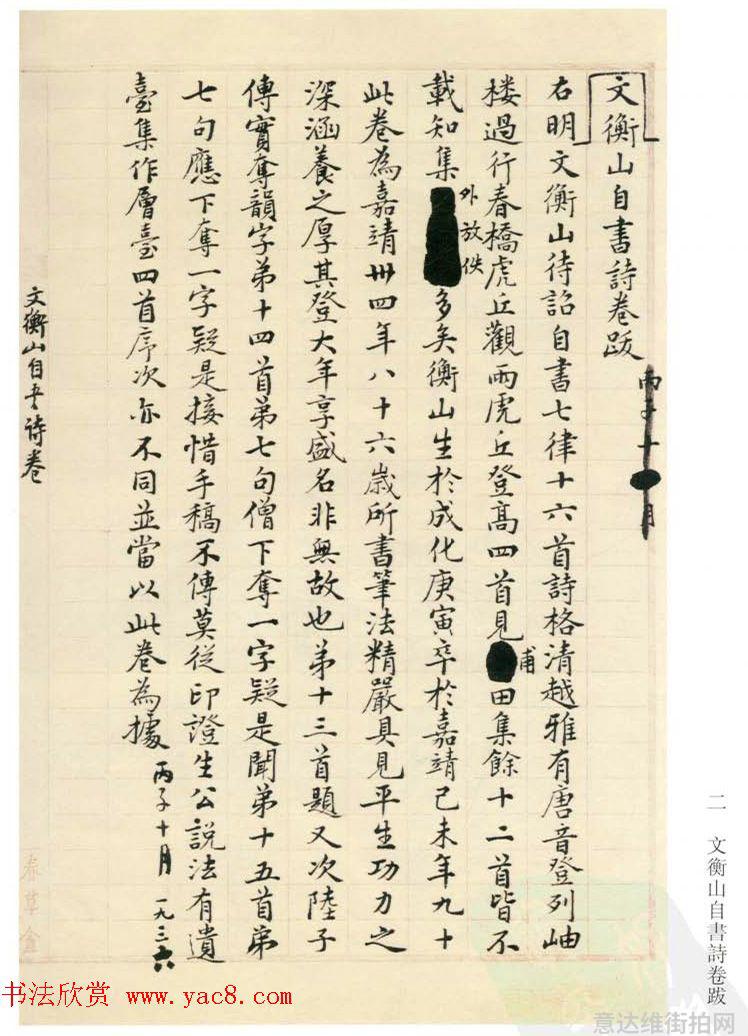 文衡山自書詩卷跋
丙子十月
右明文衡山待詔自書七律十六首詩格清越雅有唐音登列岫
楼過行春橋虎丘觀雨虎丘登高四首見甫田集餘十二首皆不
載知集外放佚多矣衡山生於成化庚寅卒於嘉靖己未年九十
此卷為嘉靖卅四年八十六歲所書筆法精嚴具見平生功力之
深涵養之厚其登大年享盛名非無故也弟十三首題又次陸子
傳實奪韻字弟十四首弟七句僧下奪一字疑是聞弟十五首弟
七句應下奪一字疑是接惜手稿不傳莫從印證生公説法有遺
臺集作層臺四首序次亦不同並當以此卷為據
丙子十月 一九三六
文衡山自書詩卷
二 文衡山自書詩卷跋
书法欣赏 www.yac8.com
意达维街拍网